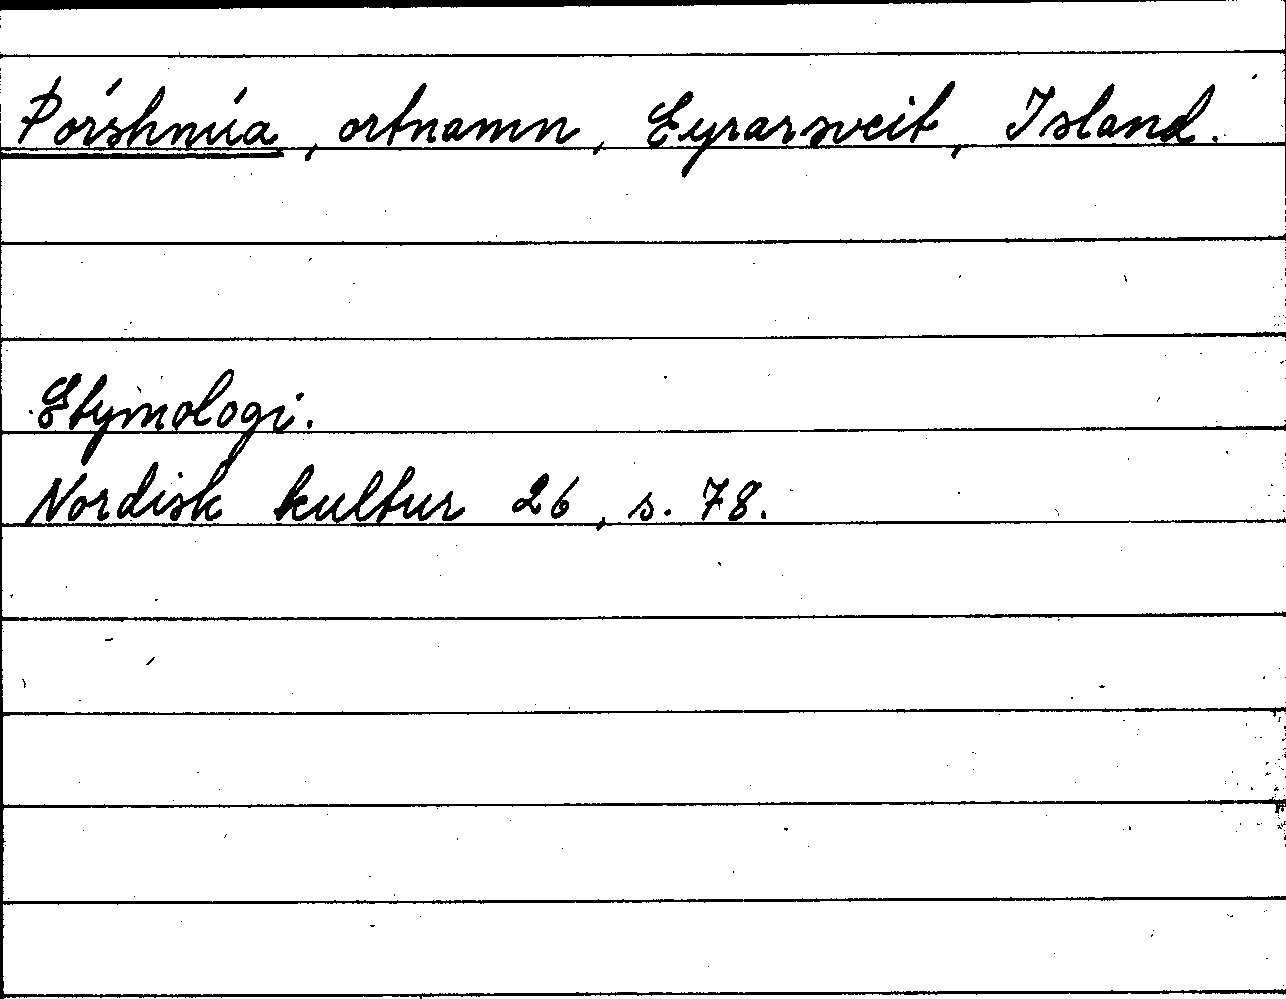 Þórshnúa, ortnamn, Eyrarsveit, Island.
Etymologi.
Nordisk kultur 26, s. 78.